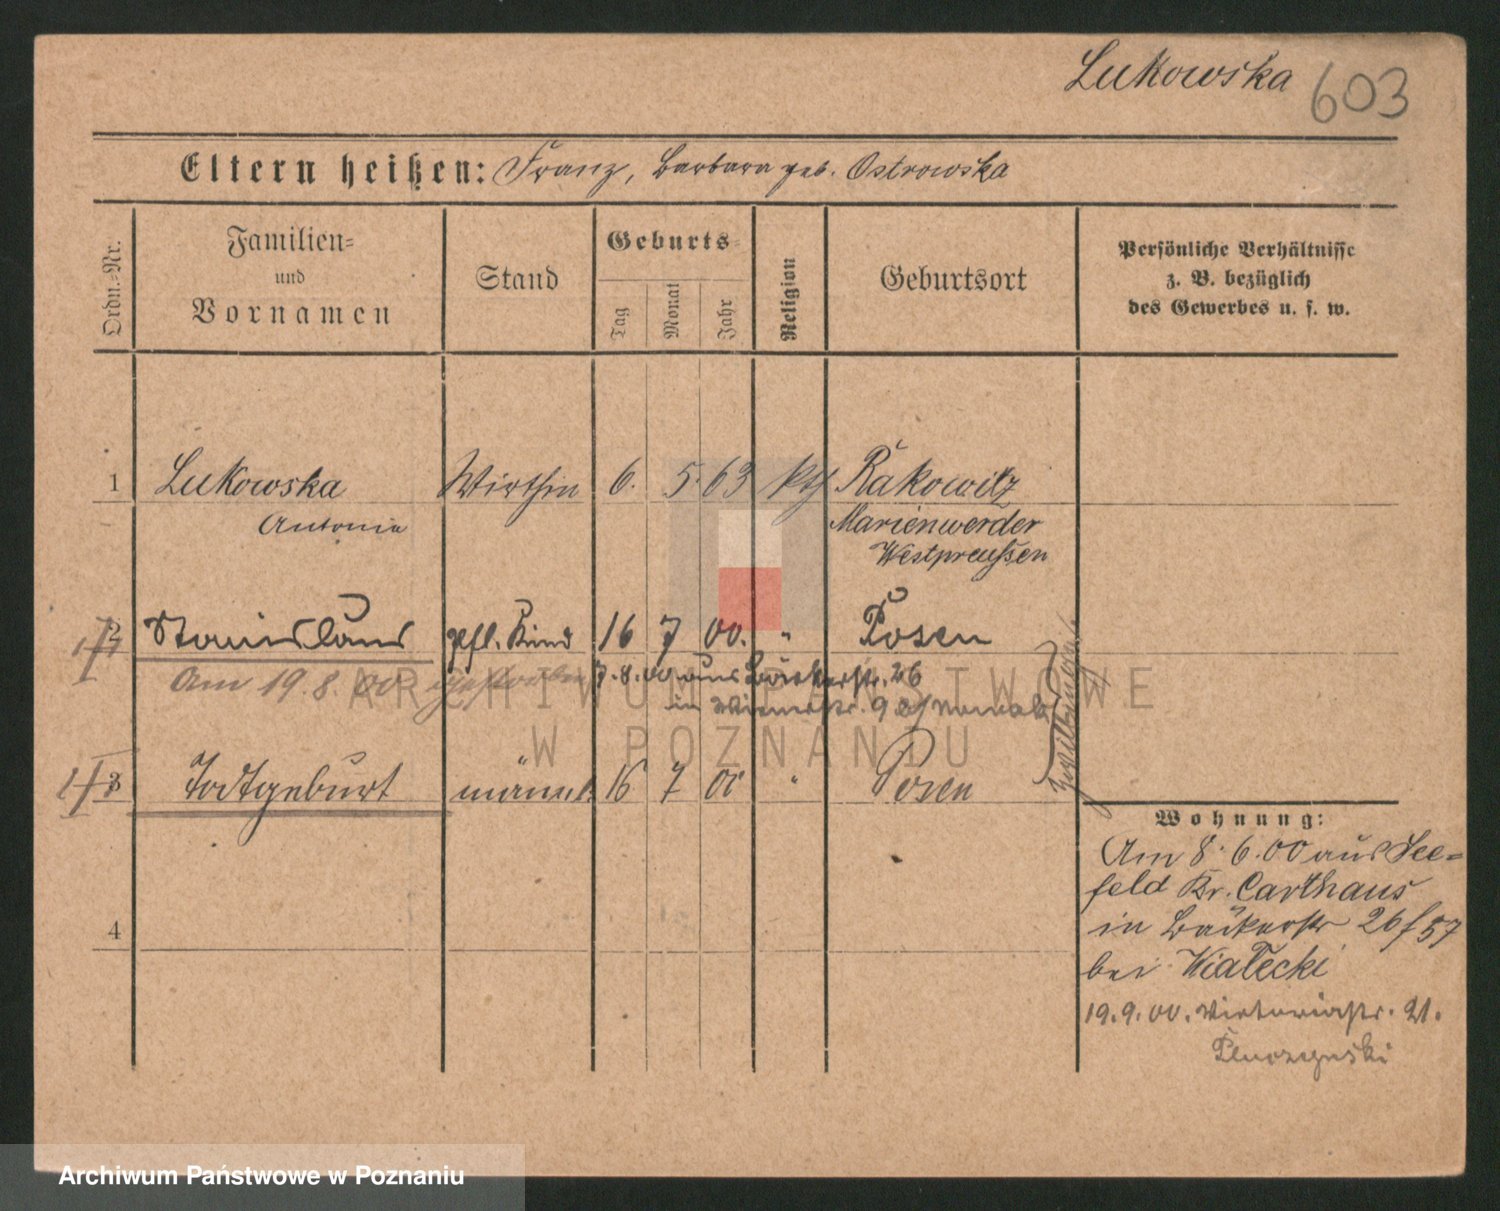 Lukowska 603
Eltern heißen: Franz, Barbara geb. Ostrowska
Ordn.-Nr.
Familien-
und
Vornamen
Stand
Geburts-
Tag
Monat
Jahr
Religion
Geburtsort
Persönliche Verhältnisse
z. B. bezüglich
des Gewerbes u. s. w.
1 Lukowska Wirthin 6. 5. 63 kth Rakowitz
Antonia Marienwerder
Westpreußen
2 Stanislaus pfl. Kind 16 7 00. " Posen
Am 19.8.00 gestorben 7.8.00 aus Bäckerstr. 26
in 9 b/ Nowak
3 Todtgeburt männl. 16 7 00 " Posen
Wohnung:
Am 8.6.00 aus See=
feld Kr. Carthaus
in Bäckerstr 26 f 57
bei Wiatecki
19.9.00. Victoriastr. 21.
4
ARCHIWUM PAŃSTWOWE
W POZNANIU
Archiwum Państwowe w Poznaniu